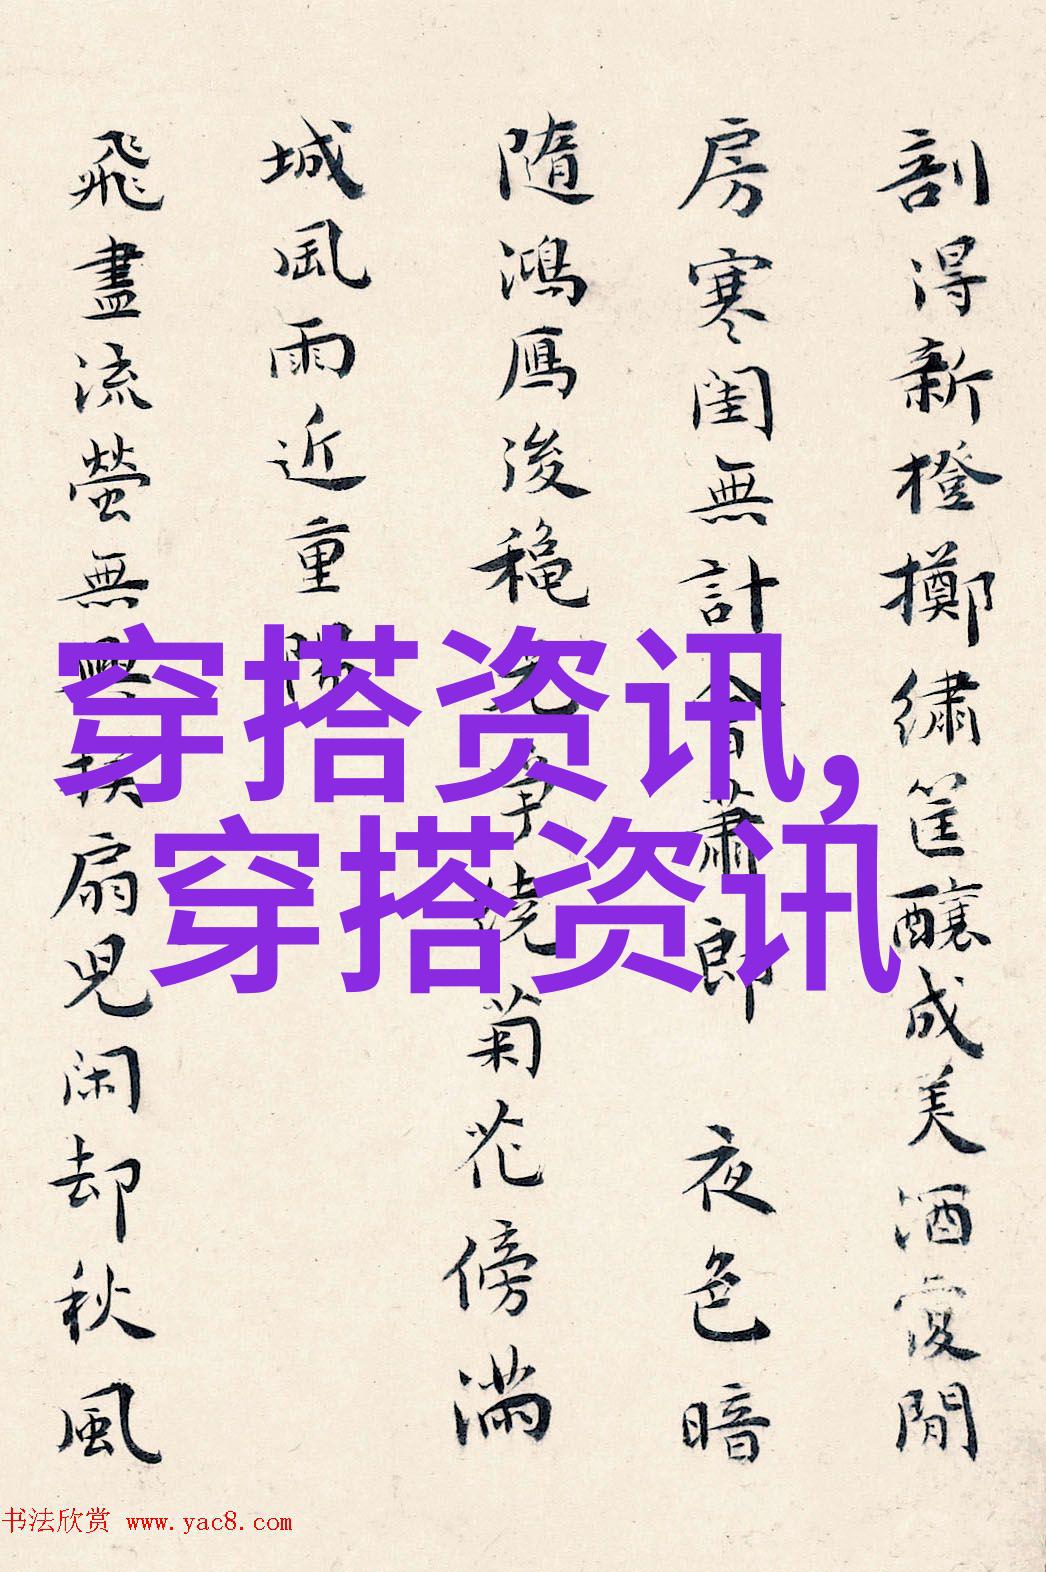 剖得新橙擲繡筐釀成美酒閒
房寒閨無計會蕭郎 夜色暗
隨鴻雁後穐光爭繞菊花傍滿
城風雨近重陽
飛盡流螢無興撲扇兒閑却秋風
穿搭资讯,
穿搭资讯
书法欣赏 www.yac8.com